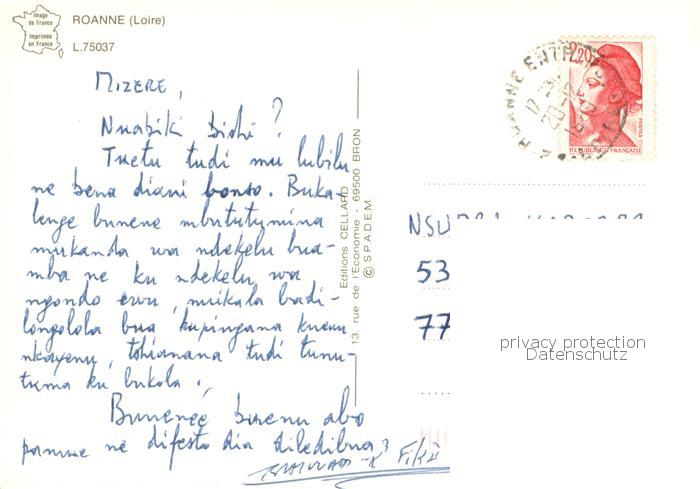 Image
de France
Imprimée
en France
ROANNE (Loire)
L.75037
MIZERE,
Nuabiki bishi ?
Tuetu tudi mu lubilu
ne bena diani bonso. Buka-
lenge bunene mbututumina
mukanda wa ndekelu bua-
mba ne ku ndekelu wa
ngondo ewu, mikala badi-
longolola bua kupingana kuenu
nkayenu, tshianana tudi tunu-
tuma ku bukola.
Buneneé buenu abo
pamue ne difesto dia diledibua
FiKi
Editions CELLARD
13, rue de l'Economie - 69500 BRON
© S.P.A.D.E.M.
ROANNE
2,20
POSTES
REPUBLIQUE FRANÇAISE
NSU
53
77
privacy protection
Datenschutz